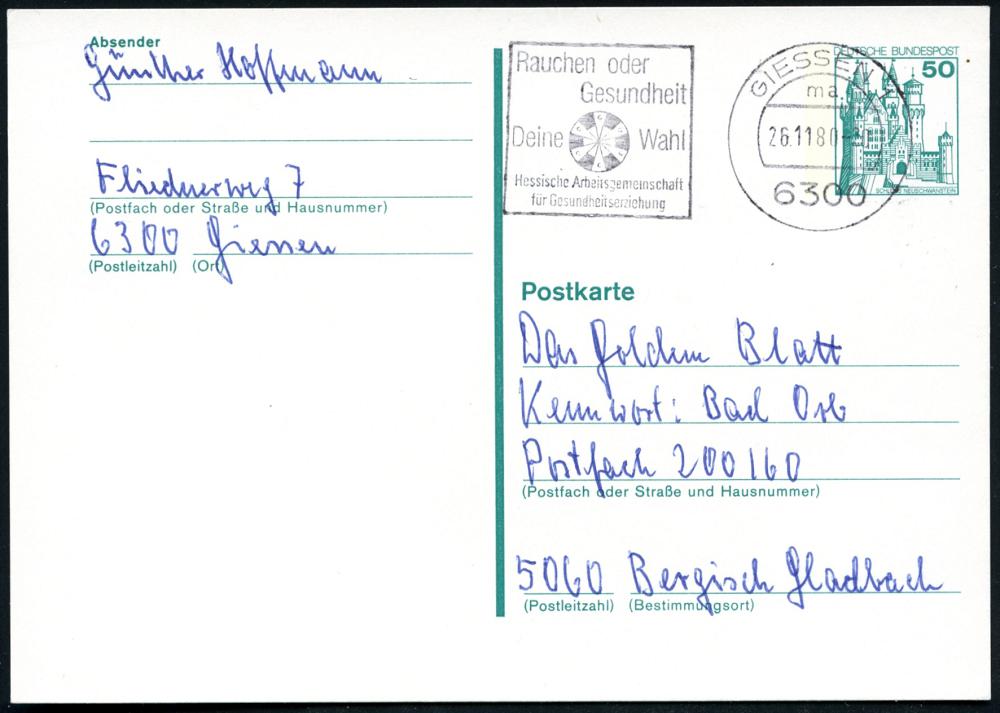 Absender
Günther Hoffmann
Fliednerweg 7
(Postfach oder Straße und Hausnummer)
6300 Giessen
(Postleitzahl) (Ort)
Rauchen oder
Gesundheit
Deine Wahl
Hessische Arbeitsgemeinschaft
für Gesundheitserziehung
GIESSEN
ma
26.11.80
6300
DEUTSCHE BUNDESPOST
50
SCHLOSS NEUSCHWANSTEIN
Postkarte
Das Goldene Blatt
Kennwort: Bad Orb
Postfach 200160
(Postfach oder Straße und Hausnummer)
5060 Bergisch Gladbach
(Postleitzahl) (Bestimmungsort)